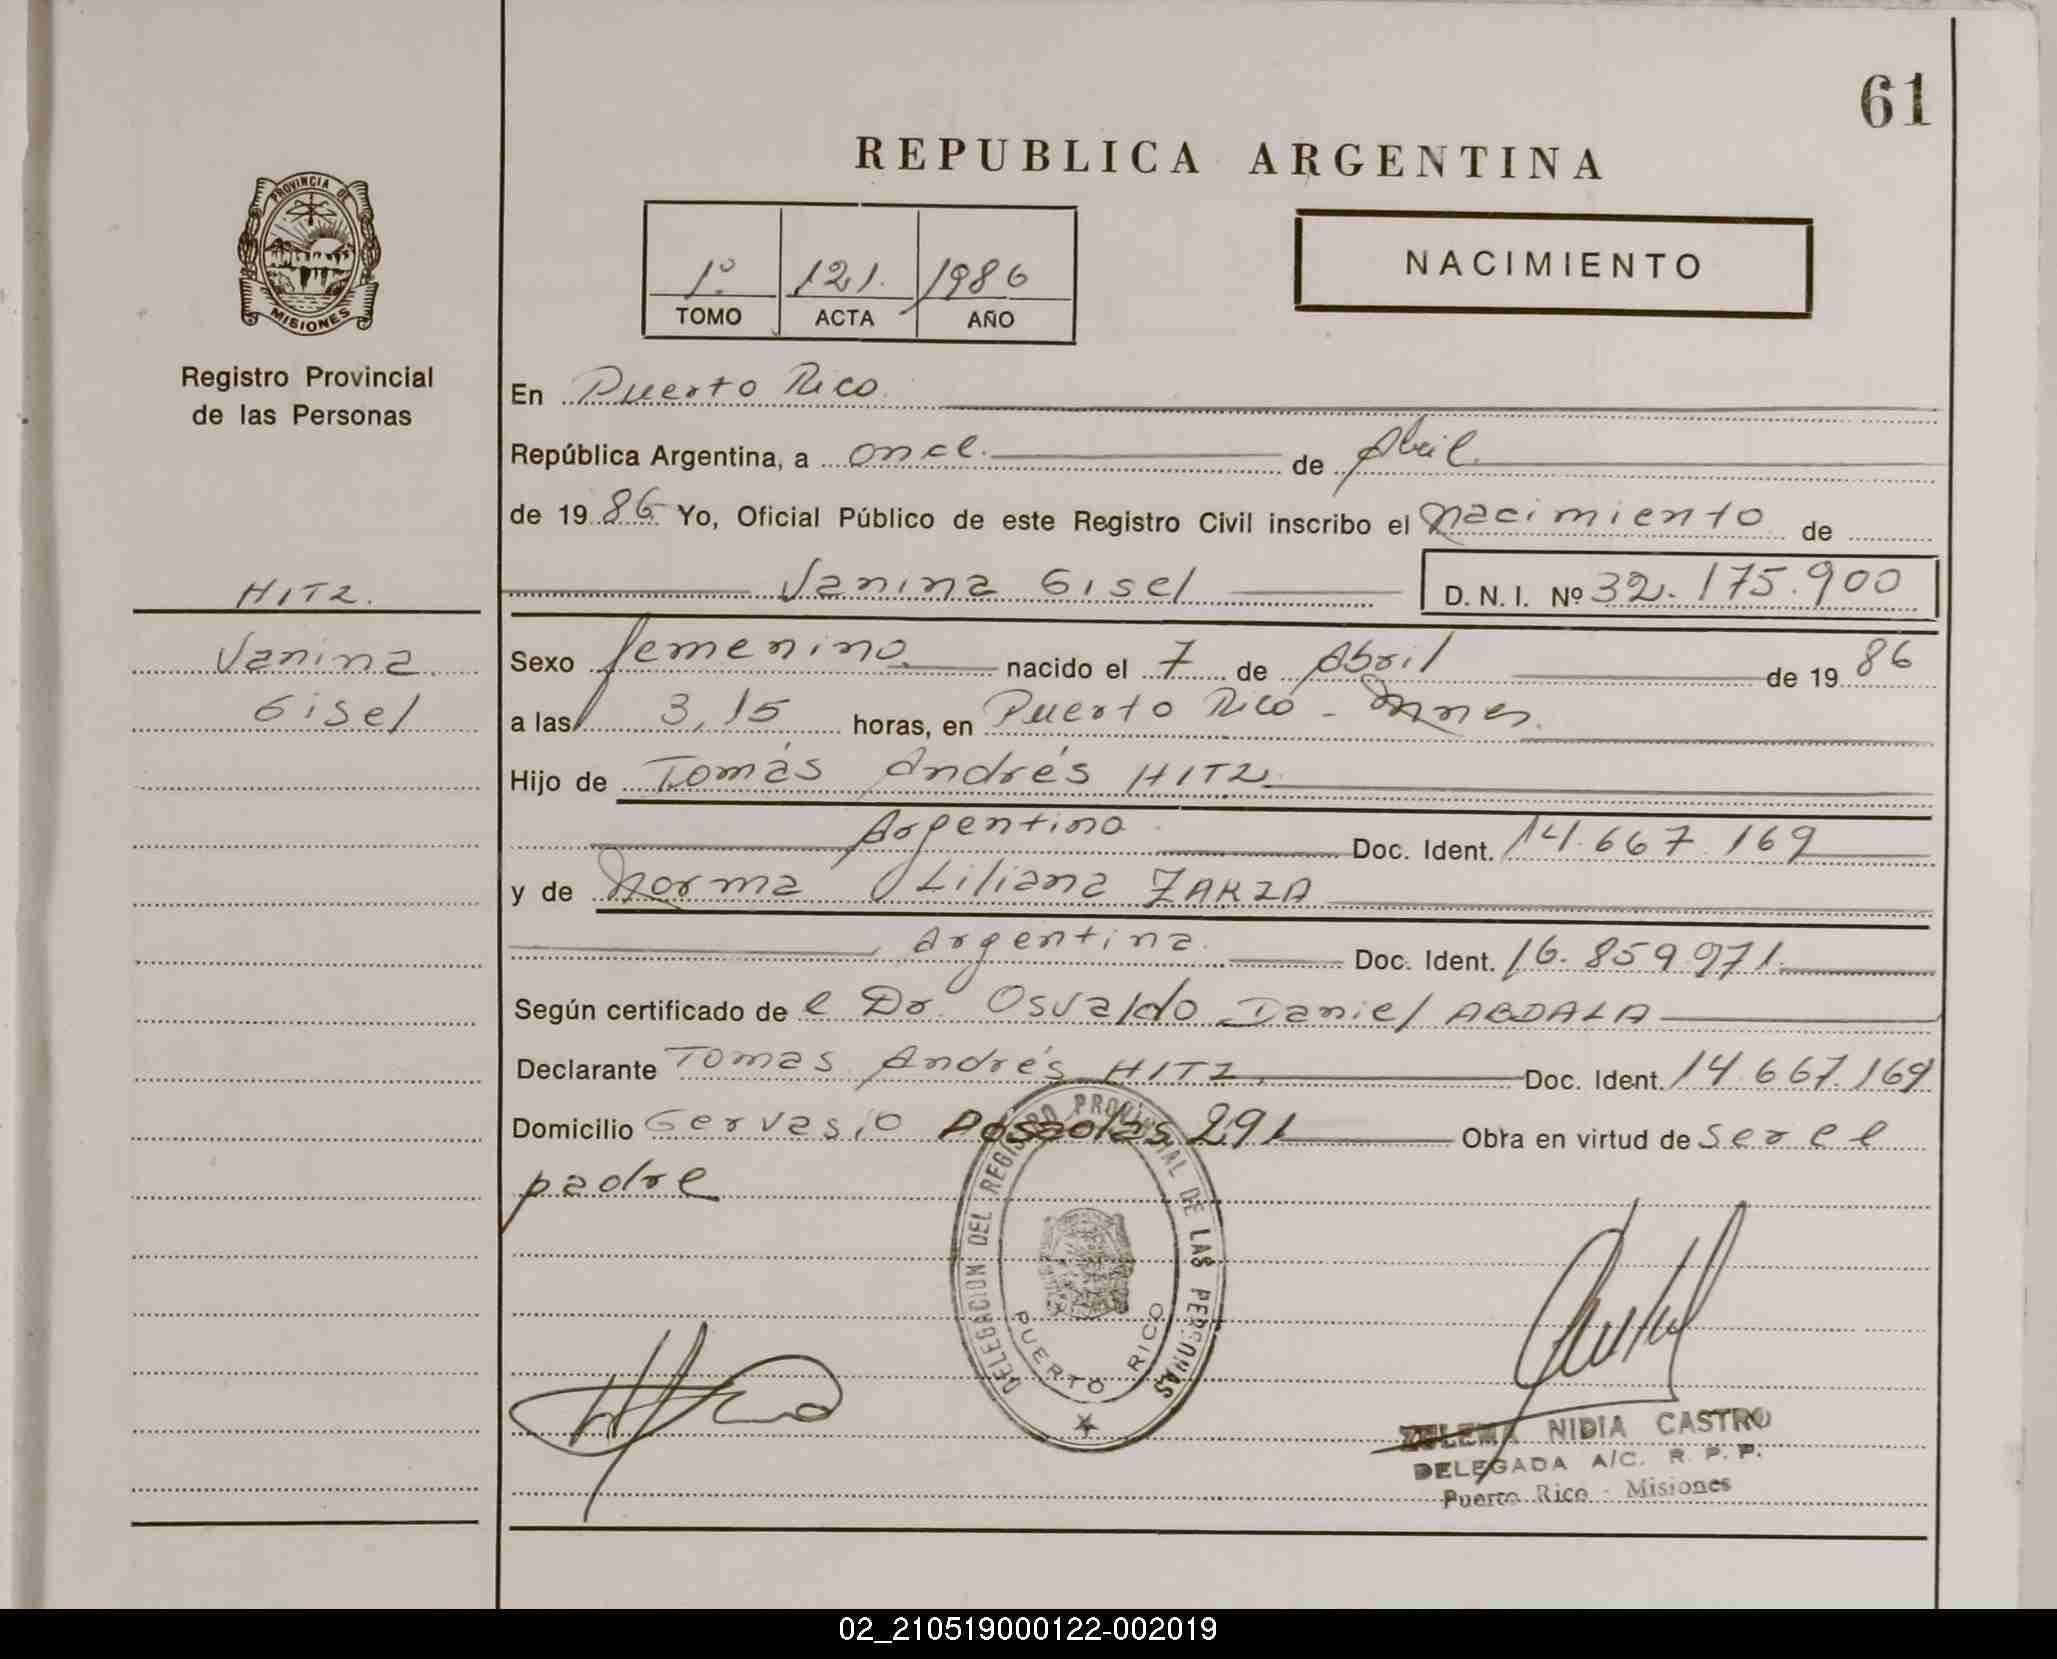 61
REPUBLICA ARGENTINA
PROVINCIA DE
MISIONES
Registro Provincial
de las Personas
1º 121. 1986
TOMO ACTA AÑO
NACIMIENTO
En Puerto Rico.
República Argentina, a once. de Abril.
de 1986 Yo, Oficial Público de este Registro Civil inscribo el Nacimiento de
HITZ.
Vanina Gisel D. N. I. Nº 32.175.900
Vanina
Gisel
Sexo femenino. nacido el 7 de Abril de 1986
a las 3,15 horas, en Puerto Rico - Mnes.
Hijo de Tomás Andrés HITZ.
Argentino Doc. Ident. 14.667.169
y de Norma Liliana ZARZA
Argentina. Doc. Ident. 16.859.971.
Según certificado de l Dr. Osvaldo Daniel ABDALA
Declarante Tomas Andrés HITZ. Doc. Ident. 14.667.169
Domicilio Gervasio Posadas 291 Obra en virtud de ser el
padre
DELEGACION DEL REGISTRO PROVINCIAL DE LAS PERSONAS
PUERTO RICO
ZULEMA NIDIA CASTRO
DELEGADA A/C. R. P. P.
Puerto Rico - Misiones
02_210519000122-002019